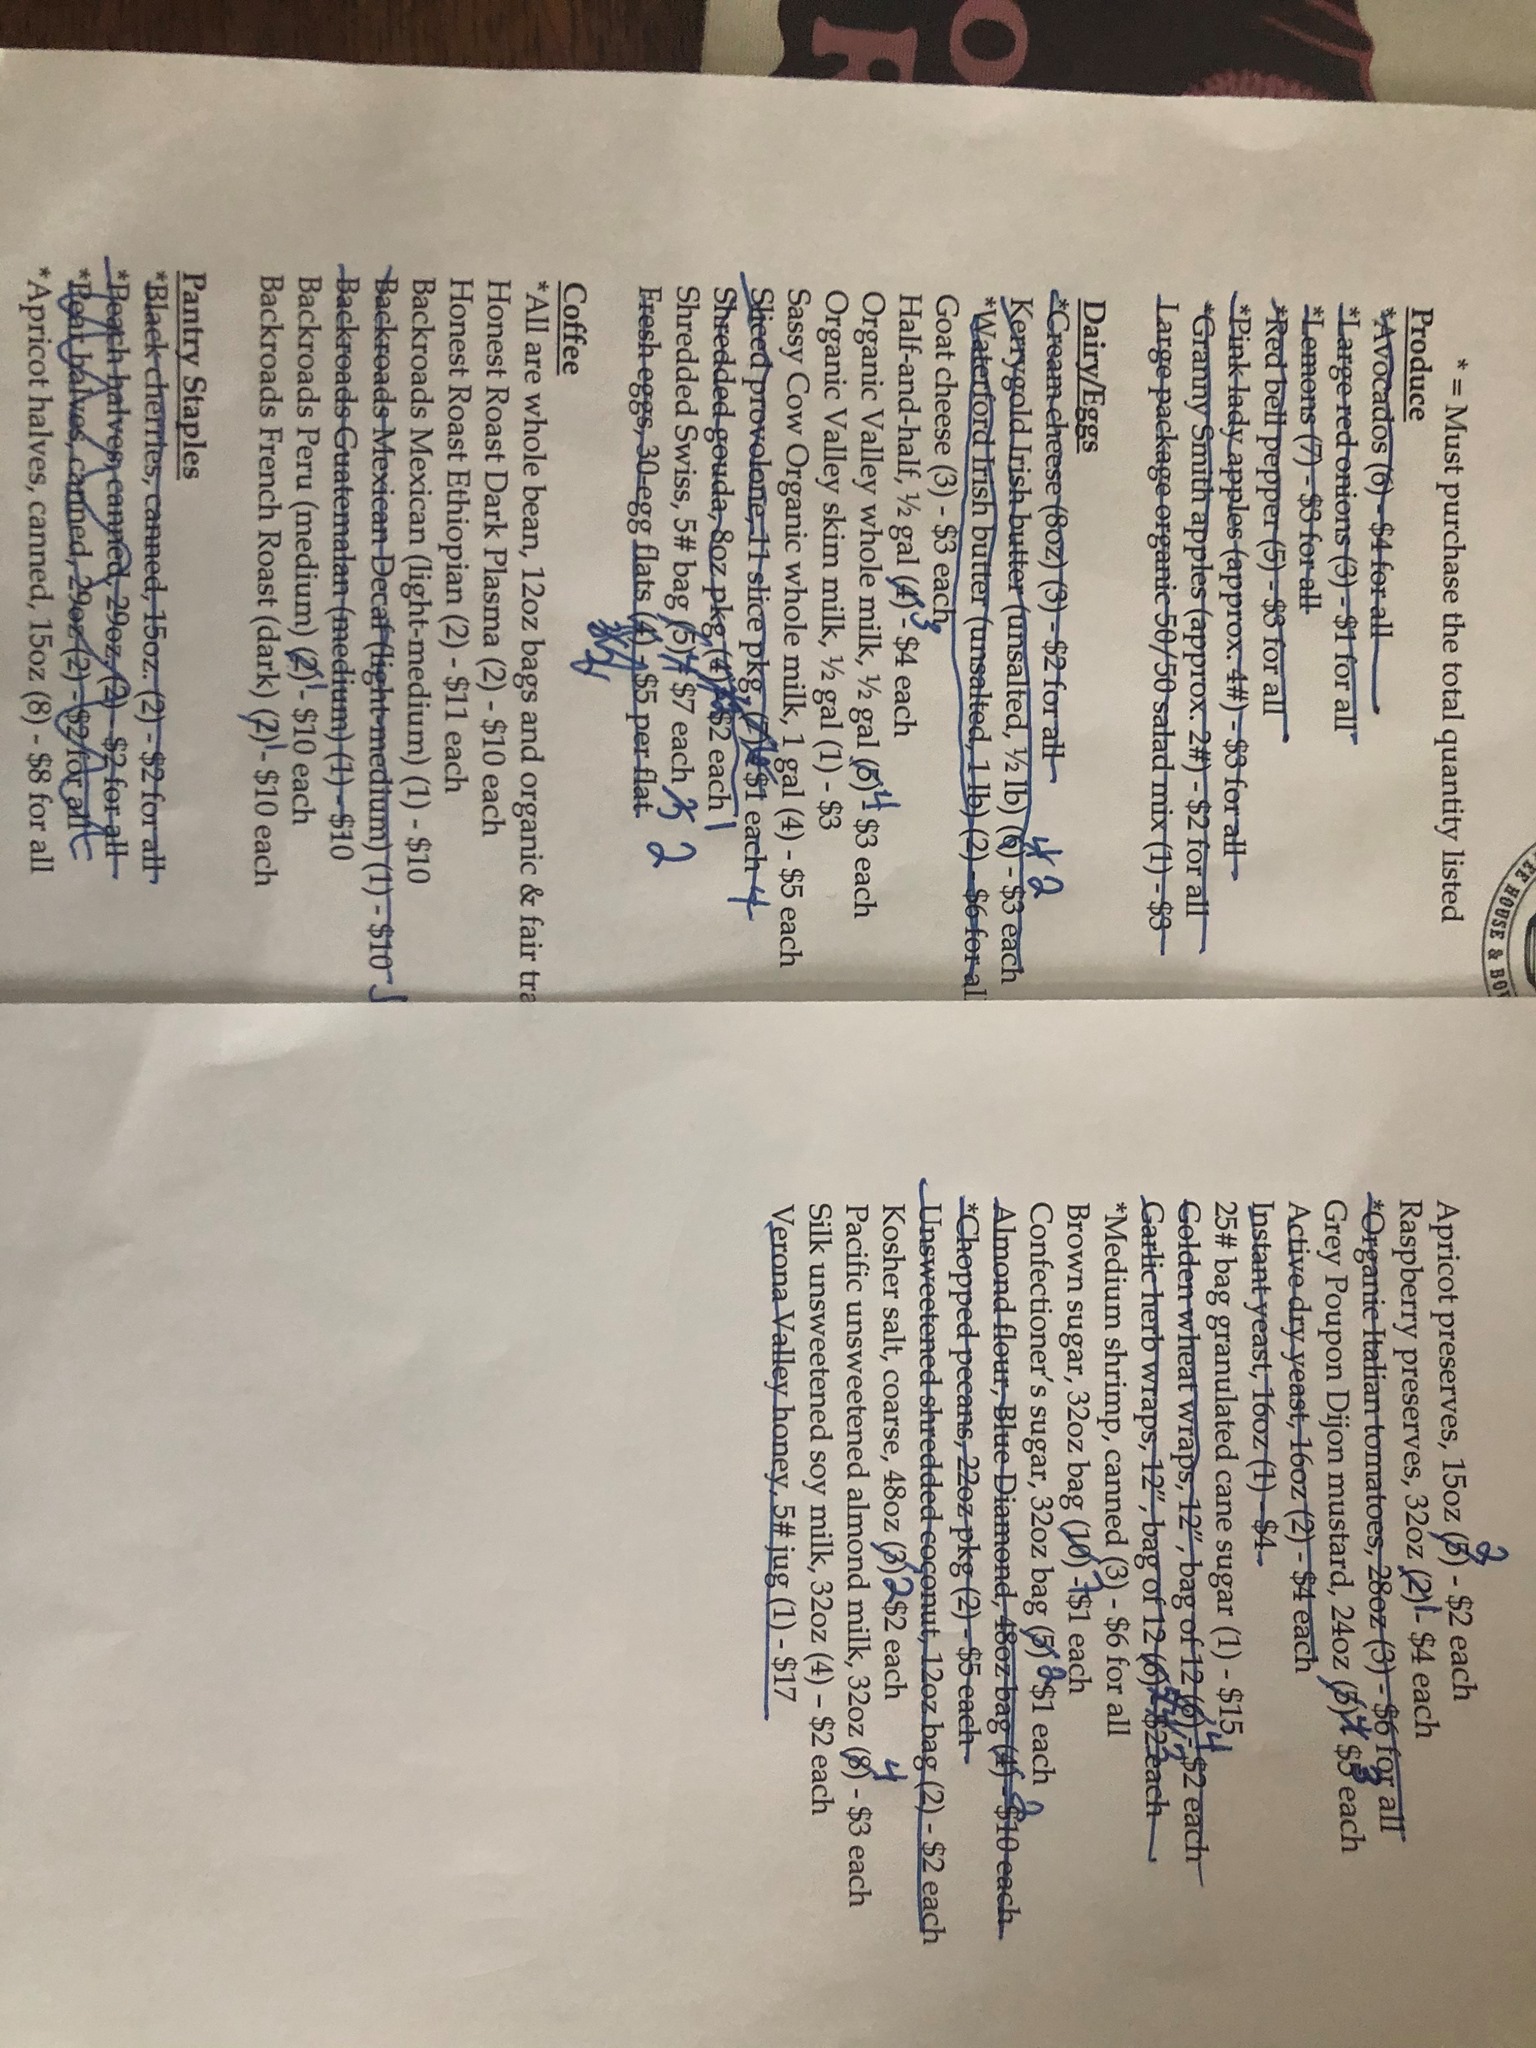 OR
EE HOUSE & BO
* = Must purchase the total quantity listed
Produce
*Avocados (6) - $4 for all
*Large red onions (3) - $1 for all
*Lemons (7) - $3 for all
*Red bell pepper (5) - $3 for all
*Pink lady apples (approx. 4#) - $3 for all
*Granny Smith apples (approx. 2#) - $2 for all
Large package organic 50/50 salad mix (1) - $3
Dairy/Eggs
*Cream cheese (8oz) (3) - $2 for all
Kerrygold Irish butter (unsalted, ½ lb) (6) - $3 each 4 2
*Waterford Irish butter (unsalted, 1 lb) (2) - $6 for al
Goat cheese (3) - $3 each
Half-and-half, ½ gal (4) 3 - $4 each
Organic Valley whole milk, ½ gal (5) 4 $3 each
Organic Valley skim milk, ½ gal (1) - $3
Sassy Cow Organic whole milk, 1 gal (4) - $5 each
Sliced provolone, 11 slice pkg, (7) $1 each 4
Shredded gouda, 8oz pkg (4) $2 each 1
Shredded Swiss, 5# bag (5) 4 $7 each 3 2
Fresh eggs, 30-egg flats (4) - $5 per flat
Coffee
*All are whole bean, 12oz bags and organic & fair tra
Honest Roast Dark Plasma (2) - $10 each
Honest Roast Ethiopian (2) - $11 each
Backroads Mexican (light-medium) (1) - $10
Backroads Mexican Decaf (light-medium) (1) - $10
Backroads Guatemalan (medium) (1) - $10
Backroads Peru (medium) (2) 1 - $10 each
Backroads French Roast (dark) (2) 1 - $10 each
Pantry Staples
*Black cherries, canned, 15oz. (2) - $2 for all
*Peach halves, canned, 29oz (2) - $2 for all
*Pear halves, canned, 29oz (2) - $2 for all
*Apricot halves, canned, 15oz (8) - $8 for all
Apricot preserves, 15oz (5) 2 - $2 each
Raspberry preserves, 32oz (2) 1 - $4 each
*Organic Italian tomatoes, 28oz (3) - $6 for all
Grey Poupon Dijon mustard, 24oz (5) 4 $5 3 each
Active dry yeast, 16oz (2) - $4 each
Instant yeast, 16oz (1) - $4
25# bag granulated cane sugar (1) - $15
Golden wheat wraps, 12", bag of 12 (6) 4 - $2 each
Garlic herb wraps, 12", bag of 12 (6) 3 $2 each
*Medium shrimp, canned (3) - $6 for all
Brown sugar, 32oz bag (10) - 7 $1 each
Confectioner's sugar, 32oz bag (5) 2 $1 each
Almond flour, Blue Diamond, 48oz bag (4) - 2 $10 each
*Chopped pecans, 22oz pkg (2) - $5 each
Unsweetened shredded coconut, 12oz bag (2) - $2 each
Kosher salt, coarse, 48oz (3) 2 $2 each
Pacific unsweetened almond milk, 32oz (8) 4 - $3 each
Silk unsweetened soy milk, 32oz (4) – $2 each
Verona Valley honey, 5# jug (1) - $17